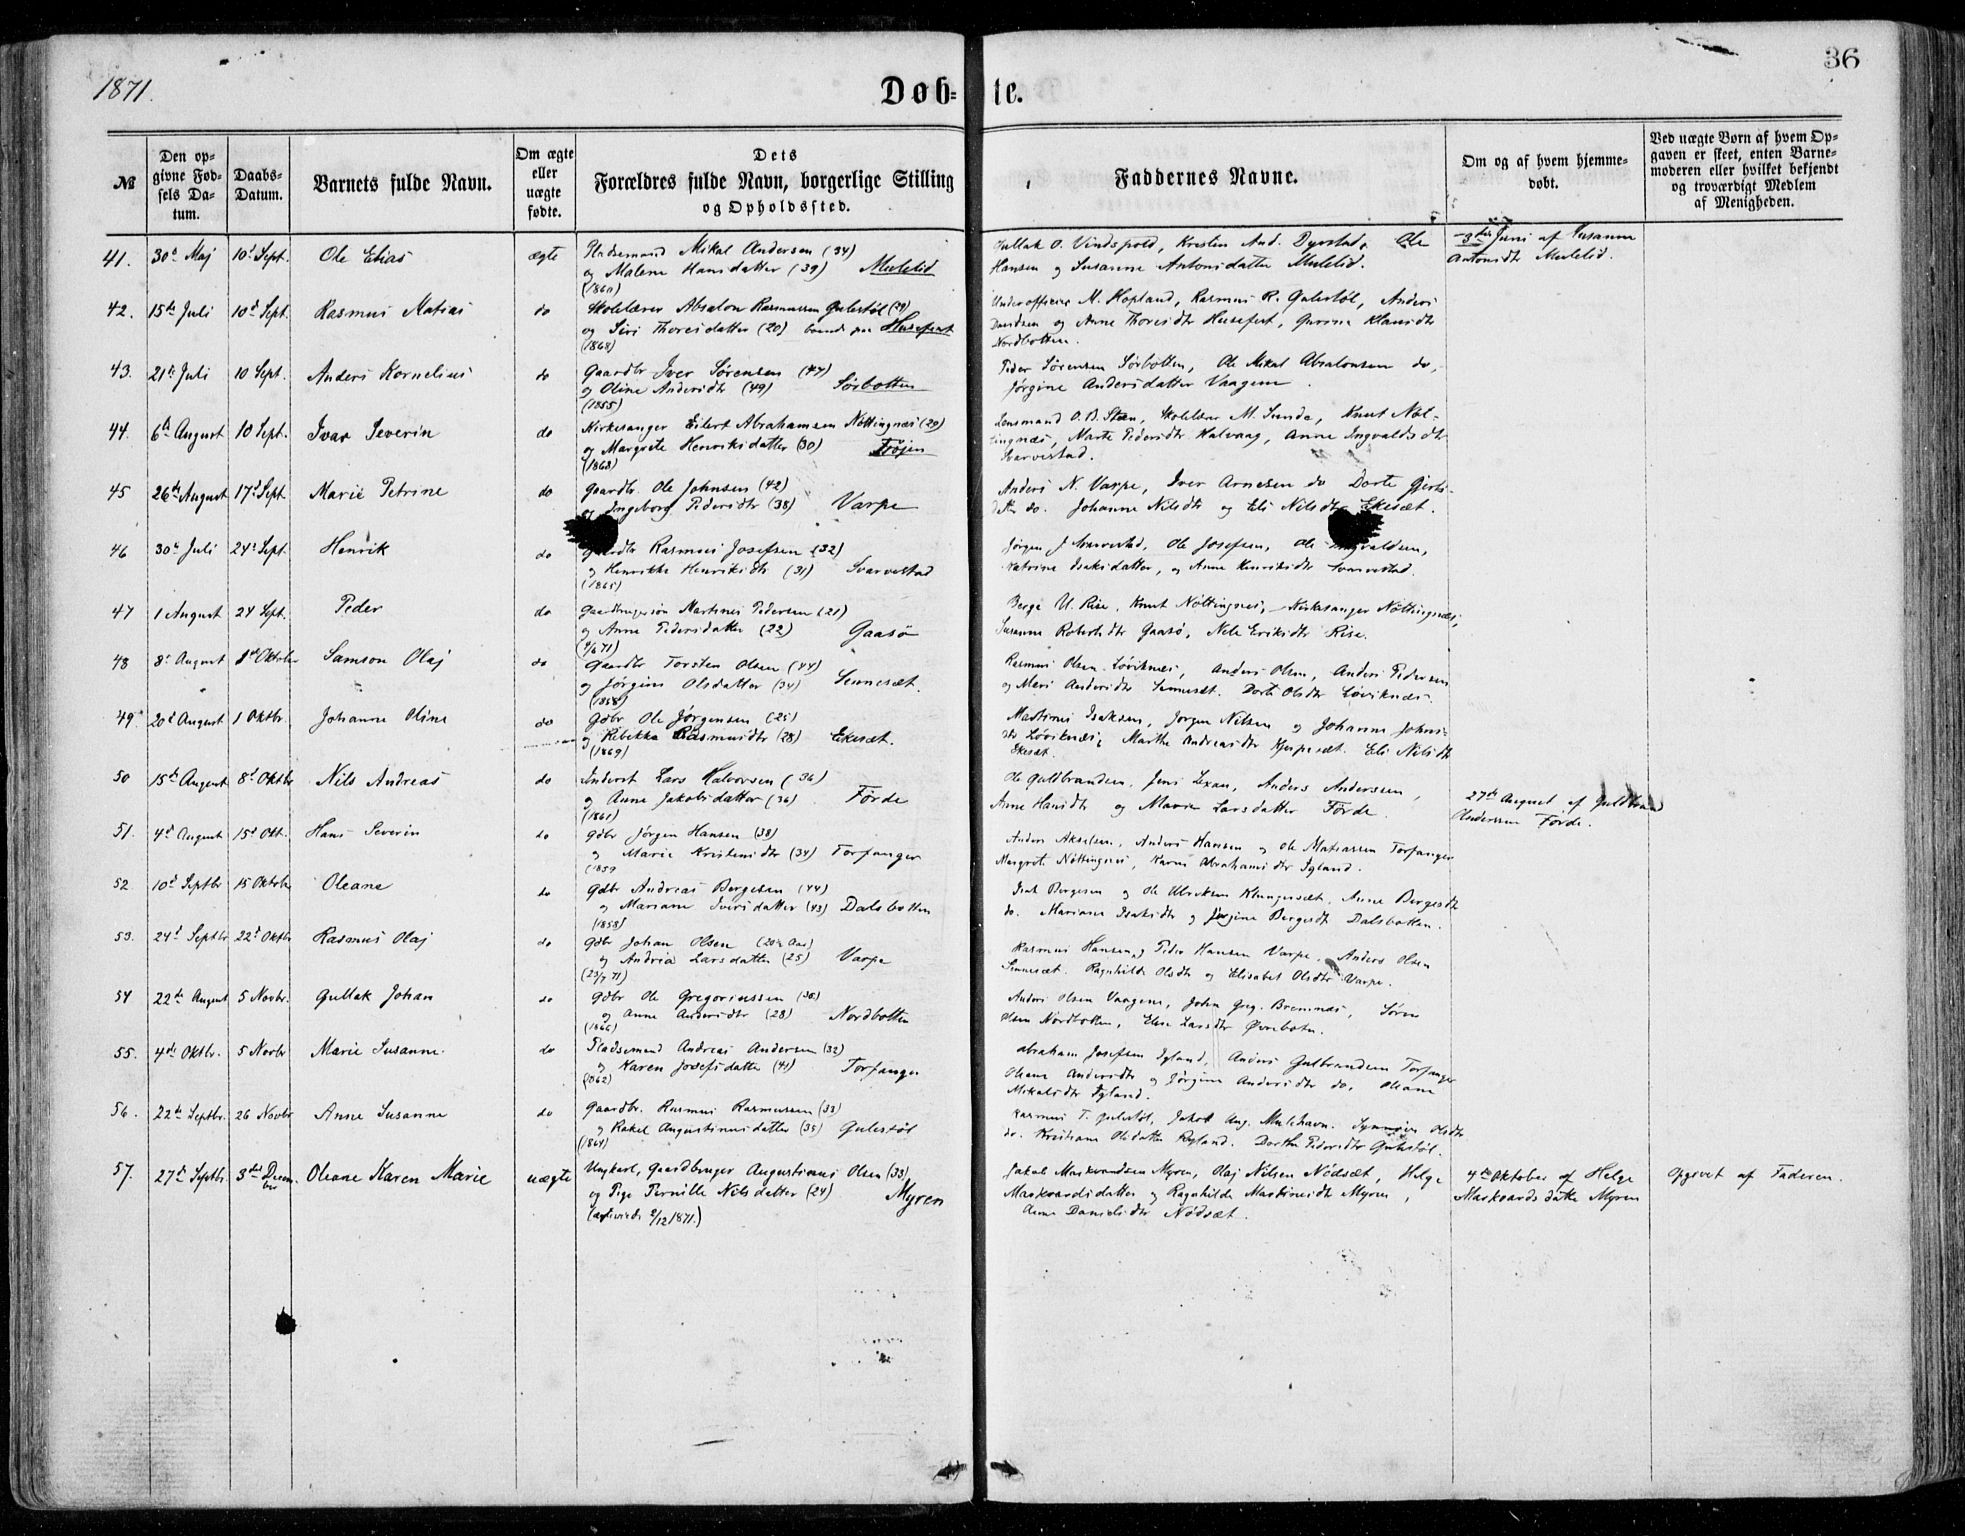 1871.
Døb-
te.
36
№
Den op-
givne Fød-
sels Da-
tum.
Daabs-
Datum.
Barnets fulde Navn.
Om ægte
eller
uægte
fødte.
Dets
Forældres fulde Navn, borgerlige Stilling
og Opholdssted.
Faddernes Navne.
Om og af hvem hjemme-
døbt.
Ved uægte Børn af hvem Op-
gaven er skeet, enten Barne-
moderen eller hvilket bekjendt
og troværdigt Medlem
af Menigheden.
41. 30 Maj 10 Sept. Ole Elias ægte Pladsemand Mikal Andersen (34)
og Malene Hansdatter (39) Mulelid
Gullak O. Vindspold, Kresten And. Dyrstad, Ole
Hansen og Susanne Antonsdatter Mulelid.
3die Juni af Susanne
Antonsdtr Mulelid.
42. 15de Juli 10d Sept. Rasmus Matias do Skolelærer Absalon Rasmussen Gulestøl (29)
og Siri Thoresdatter (20) boende paa Husefest
(1868)
Underofficier M. Hopland, Rasmus R. Gulestøl, Anders
Davidsen og Anne Thoresdtr Husefest, Gurine Hansdtr
Nordbotten.
43. 21de Juli 10 Sept. Anders Kornelius do Gaardbr Iver Sørensen (47)
og Oline Andersdtr (49) Sørbotten
(1855)
Peder Sørensen Sørbotten, Ole Mikal Absalonsen do,
Jørgine Andersdatter Vaagene.
44. 6te August 10 Sept. Ivar Severin do Kirkesanger Eilert Abrahamsen Nøttingnæs (29)
og Margrete Henriksdatter (30) Frøjen
(1868)
Lensmand O. B. Steen, Skolelærer M. Sunde, Knut Nøt-
tingnæs, Marte Pedersdtr Kalvaag, Anne Ingvaldsdtr
Svarvestad.
45 26de August 17d Sept. Marie Petrine do Gaardbr. Ole Johnsen (42)
og Ingeborg Pedersdtr (38) Varpe
Anders N. Varpe, Iver Arnesen do Dorte Gjerts-
datter do. Johanne Nilsdtr og Eli Nilsdtr Ekesæt.
46 30te Juli 24d Sept. Henrik do Gaardbr Rasmus Josefsen (32)
og Henrikke Henriksdtr (31) Svarvestad
(1865)
Jørgen J. Svarvestad, Ole Josefsen, Ole Ingvaldsen,
Katrine Isaksdatter, og Anne Henriksdtr Svarvestad.
47 1 August 24 Sept. Peder do Gaardbrugersøn Martines Pedersen (21)
og Anne Pedersdatter (22) Gaasø
Berge U. Rise, Knut Nøttingnes, Kirkesanger Nøttingnæs,
Susanne Robertsdtr Gaasø, Nele Eriksdtr Rise.
48 8d August 1ste Oktober Samson Olaj do Gaardbr Torsten Olsen (44)
og Jørgine Olsdatter (34) Sennesæt.
(1858)
Rasmus Olsen Løviknæs, Anders Olsen, Anders Pedersen
og Mari Andersdtr Sennesæt. Dorte Olsdtr Løviknæs.
49 20d August 1 Oktbr. Johanne Oline do Gdbr Ole Jørgensen (25)
og Rebekka Rasmusdtr (28) Ekesæt.
(1869)
Martinus Isaksen, Jørgen Nilsen og Johanne Johns-
dtr Løviknæs, Marthe Andreasdtr Kjerpesæt. Eli Nilsdtr
Ekesæt.
50 15de August 8d Oktbr Nils Andreas do Inderst Lars Halvorsen (36)
og Anne Jakobsdatter (36) Førde
(1861)
Ole Guldbrandsen, Jens Lexau, Anders Andersen,
Anne Hansdtr og Maren Larsdatter Førde.
27de August af Guldbrand
Andersen Førde.
51. 4d August 15d Okt. Hans Severin do Gdbr Jørgen Hansen (38)
og Marie Kristensdtr (34) Torfanger
(1859
Anders Akselsen, Anders Hansen og Ole Matiassen Torfanger
Margrete Nøttingnes, Karen Abrahamsdtr Igland.
52 10d Septbr 15 Oktober Oleane do Gdbr Andreas Bergesen (44)
og Mariane Iversdatter (43) Dalsbotten
(1858)
Isak Bergesen og Ole Ulriksen Klungersæt, Anne Bergesdtr
do. Mariane Isaksdtr og Jørgine Bergesdtr Dalsbotten.
53. 24d Septbr. 22d Oktbr Rasmus Olaj do Gdbr Johan Olsen (20½ Aar)
og Andrea Larsdatter (25) Varpe
(23/7 71)
Rasmus Hansen, Peder Hansen Varpe, Anders Olsen
Sennesæt. Ragnhilde Olsdtr og Elisabet Olsdtr Varpe.
54 22de August 5 Novbr. Gullak Johan do Gdbr Ole Gregoriussen (30)
og Anne Andersdtr (28) Nordbotten
(1866)
Anders Olsen Vaagene, John Greg. Bremnæs, Søren
Olsen Nordbotten, Elen Larsdtr Øvrebotn.
55. 4de Oktbr. 5 Novbr Marie Susanne. do Pladsemand Andreas Andersen (32)
og Karen Josefsdatter (41) Torfanger
(1862)
Abraham Josefsen Igland, Anders Gulbrandsen Torfanger
Oleane Andersdtr og Jørgine Andersdtr do, Oleane
Mikalsdtr Igland.
56. 22de Septbr. 26 Novbr Anne Susanne do Gaardbr. Rasmus Rasmussen (33)
og Rakel Augustinusdatter (35) Gulestøl
(1864)
Rasmus T. Gulestøl, Jakob Aug. Mulehavn. Synnøve Olsdtr
do. Kristiane Olsdatter Ryland. Dorthe Pedersdtr Gulestøl.
57. 27de Septbr. 3die Decem-
ber Oleane Karen Marie uægte Ungkarl, Gaardbruger Augustinus Olsen (33)
og Pige Pernille Nilsdatter (24) Myren
(ægteviede 2/12 1871.)
Jakob Maskvardsen Myren, Olaj Nilsen Nødsæt, Helge
Maskvardsdatter og Ragnhilde Martinusdtr Myren,
Anne Danielsdtr Nødsæt.
4de Oktober af Helge
Maskvardsdatter Myren
Opgivet af Faderen.